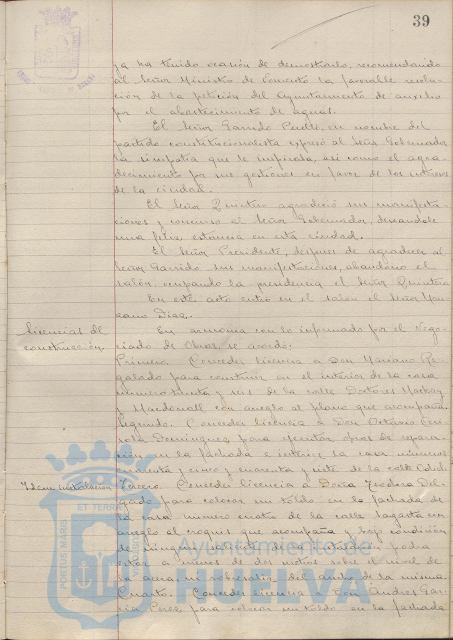 39
ya ha tenido ocasión de demostrarlo, recomendando
al Señor Ministro de Fomento la favorable resolu-
ción de la petición del Ayuntamiento de auxilio
por el abastecimiento de aguas.
El Señor Garrido Perelló, en nombre del
partido constitucionalista expresó al Señor Gobernador
la simpatía que le inspiraba, así como el agra-
decimiento por sus gestiones en favor de los intereses
de la ciudad.
El Señor Quintero agradeció sus manifesta-
ciones y concurso al Señor Gobernador, deseándole
una feliz estancia en esta ciudad.
El Señor Presidente, después de agradecer al
Señor Garrido sus manifestaciones, abandonó el
salón, ocupando la presidencia el Señor Quintero
En este acto entró en el salon el Señor
Diaz.
Licencias de
construcción.
En armonía con lo informado por el Nego-
ciado de Obras, se acordó:
Primero. Conceder licencia a Don Mariano Re-
galado para construir en el interior de la casa
número y seis de la calle Doctores Mackay
y Macdonall con arreglo al plano que acompaña.
Segundo. Conceder licencia a Don Octavio
Dominguez, para ejecutar obras de repara-
ción en la fachada e interior la casa números
cuarenta y cinco y cuarenta y siete de la calle
Idem instalación
Tercero. Conceder licencia a Doña Teodora Del-
gado para colocar un toldo en la fachada de
la casa número cuatro de la calle Sagasta con
arreglo al croquis que acompaña y bajo condición
de ningún saliente de la instalación podrá
estar a menos de dos metros sobre el nivel de
la acera, ni sobresalir del ancho de la misma.
Cuarto. Conceder licencia a Don Andres Gar-
cía Perez para colocar un toldo en la fachada
PORTUS MARIS ET TERRÆ CUSTODIA
Ayuntamiento de
HUELVA